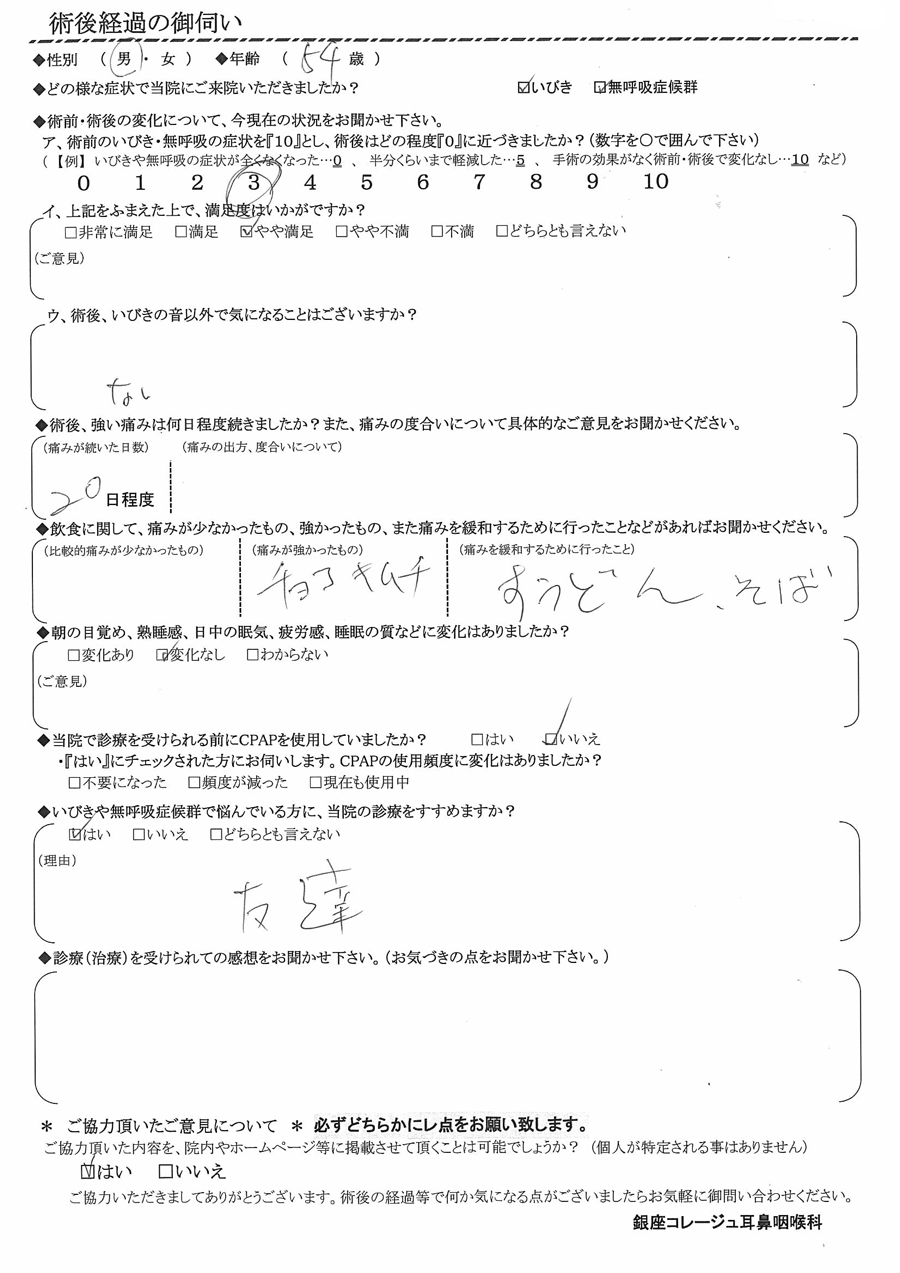 術後経過の御伺い
◆性別 （ 男 ・ 女 ） ◆年齢 （ 54 歳 ）
◆どの様な症状で当院にご来院いただきましたか？ ☑いびき ☑無呼吸症候群
◆術前・術後の変化について、今現在の状況をお聞かせ下さい。
ア、術前のいびき・無呼吸の症状を『10』とし、術後はどの程度『0』に近づきましたか？（数字を〇で囲んで下さい）
（【例】 いびきや無呼吸の症状が全くなくなった…0 、 半分くらいまで軽減した…5 、 手術の効果がなく術前・術後で変化なし…10 など）
0 1 2 3 4 5 6 7 8 9 10
イ、上記をふまえた上で、満足度はいかがですか？
□非常に満足 □満足 ☑やや満足 □やや不満 □不満 □どちらとも言えない
（ご意見）
ウ、術後、いびきの音以外で気になることはございますか？
なし
◆術後、強い痛みは何日程度続きましたか？また、痛みの度合いについて具体的なご意見をお聞かせください。
（痛みが続いた日数） （痛みの出方、度合いについて）
20 日程度
◆飲食に関して、痛みが少なかったもの、強かったもの、また痛みを緩和するために行ったことなどがあればお聞かせください。
（比較的痛みが少なかったもの） （痛みが強かったもの） （痛みを緩和するために行ったこと）
キムチ うどん、そば
◆朝の目覚め、熟睡感、日中の眠気、疲労感、睡眠の質などに変化はありましたか？
□変化あり ☑変化なし □わからない
（ご意見）
◆当院で診療を受けられる前にCPAPを使用していましたか？ □はい ☑いいえ
・『はい』にチェックされた方にお伺いします。CPAPの使用頻度に変化はありましたか？
□不要になった □頻度が減った □現在も使用中
◆いびきや無呼吸症候群で悩んでいる方に、当院の診療をすすめますか？
☑はい □いいえ □どちらとも言えない
（理由）
友達
◆診療（治療）を受けられての感想をお聞かせ下さい。（お気づきの点をお聞かせ下さい。）
＊ ご協力頂いたご意見について ＊ 必ずどちらかにレ点をお願い致します。
ご協力頂いた内容を、院内やホームページ等に掲載させて頂くことは可能でしょうか？ （個人が特定される事はありません）
☑はい □いいえ
ご協力いただきましてありがとうございます。術後の経過等で何か気になる点がございましたらお気軽に御問い合わせください。
銀座コレージュ耳鼻咽喉科